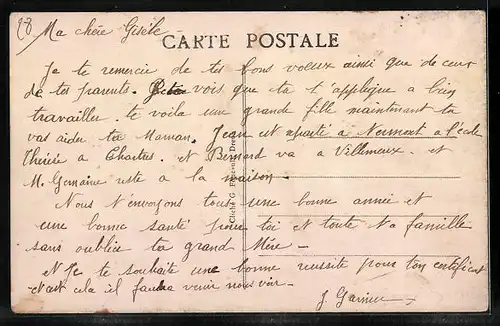 28
Ma chère Gisèle
CARTE POSTALE
Je te remercie de tes bons voeux ainsi que de ceux
de tes parents. Je vois que tu t'applique a bien
travailler. te voila une grande fille maintenant ta
vas aider ta Maman. Jean est reparti à Nermont a l'école
Thérèse a Chartres. et Bernard va a Villemeux. et
M. Germaine reste a la maison.
Nous t'envoyons tous une bonne année et
une bonne santé pour toi et toute ta famille
sans oublier ta grand Mère -
et Je te souhaite une bonne réussite pour ton certificat
cela il faudra venir nous voir -
Cliché G. Dre